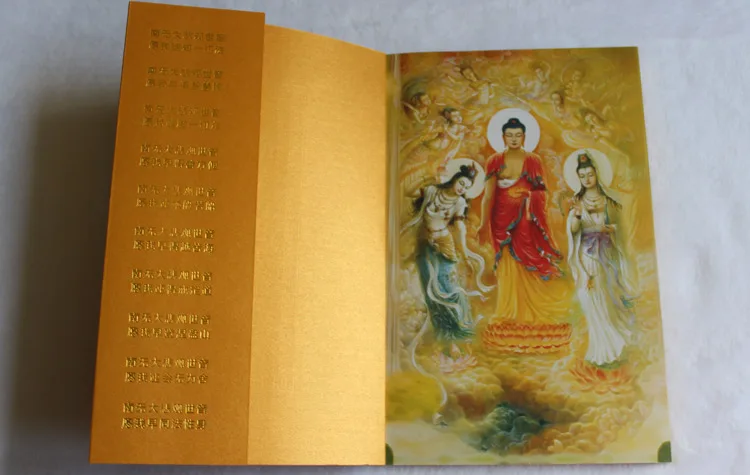 南无大悲观世音
愿我速知一切法
南无大悲观世音
愿我早得智慧眼
南无大悲观世音
愿我速度一切众
南无大悲观世音
愿我早得善方便
南无大悲观世音
愿我速乘般若船
南无大悲观世音
愿我早得越苦海
南无大悲观世音
愿我速得戒定道
南无大悲观世音
愿我早登涅盘山
南无大悲观世音
愿我速会无为舍
南无大悲观世音
愿我早同法性身